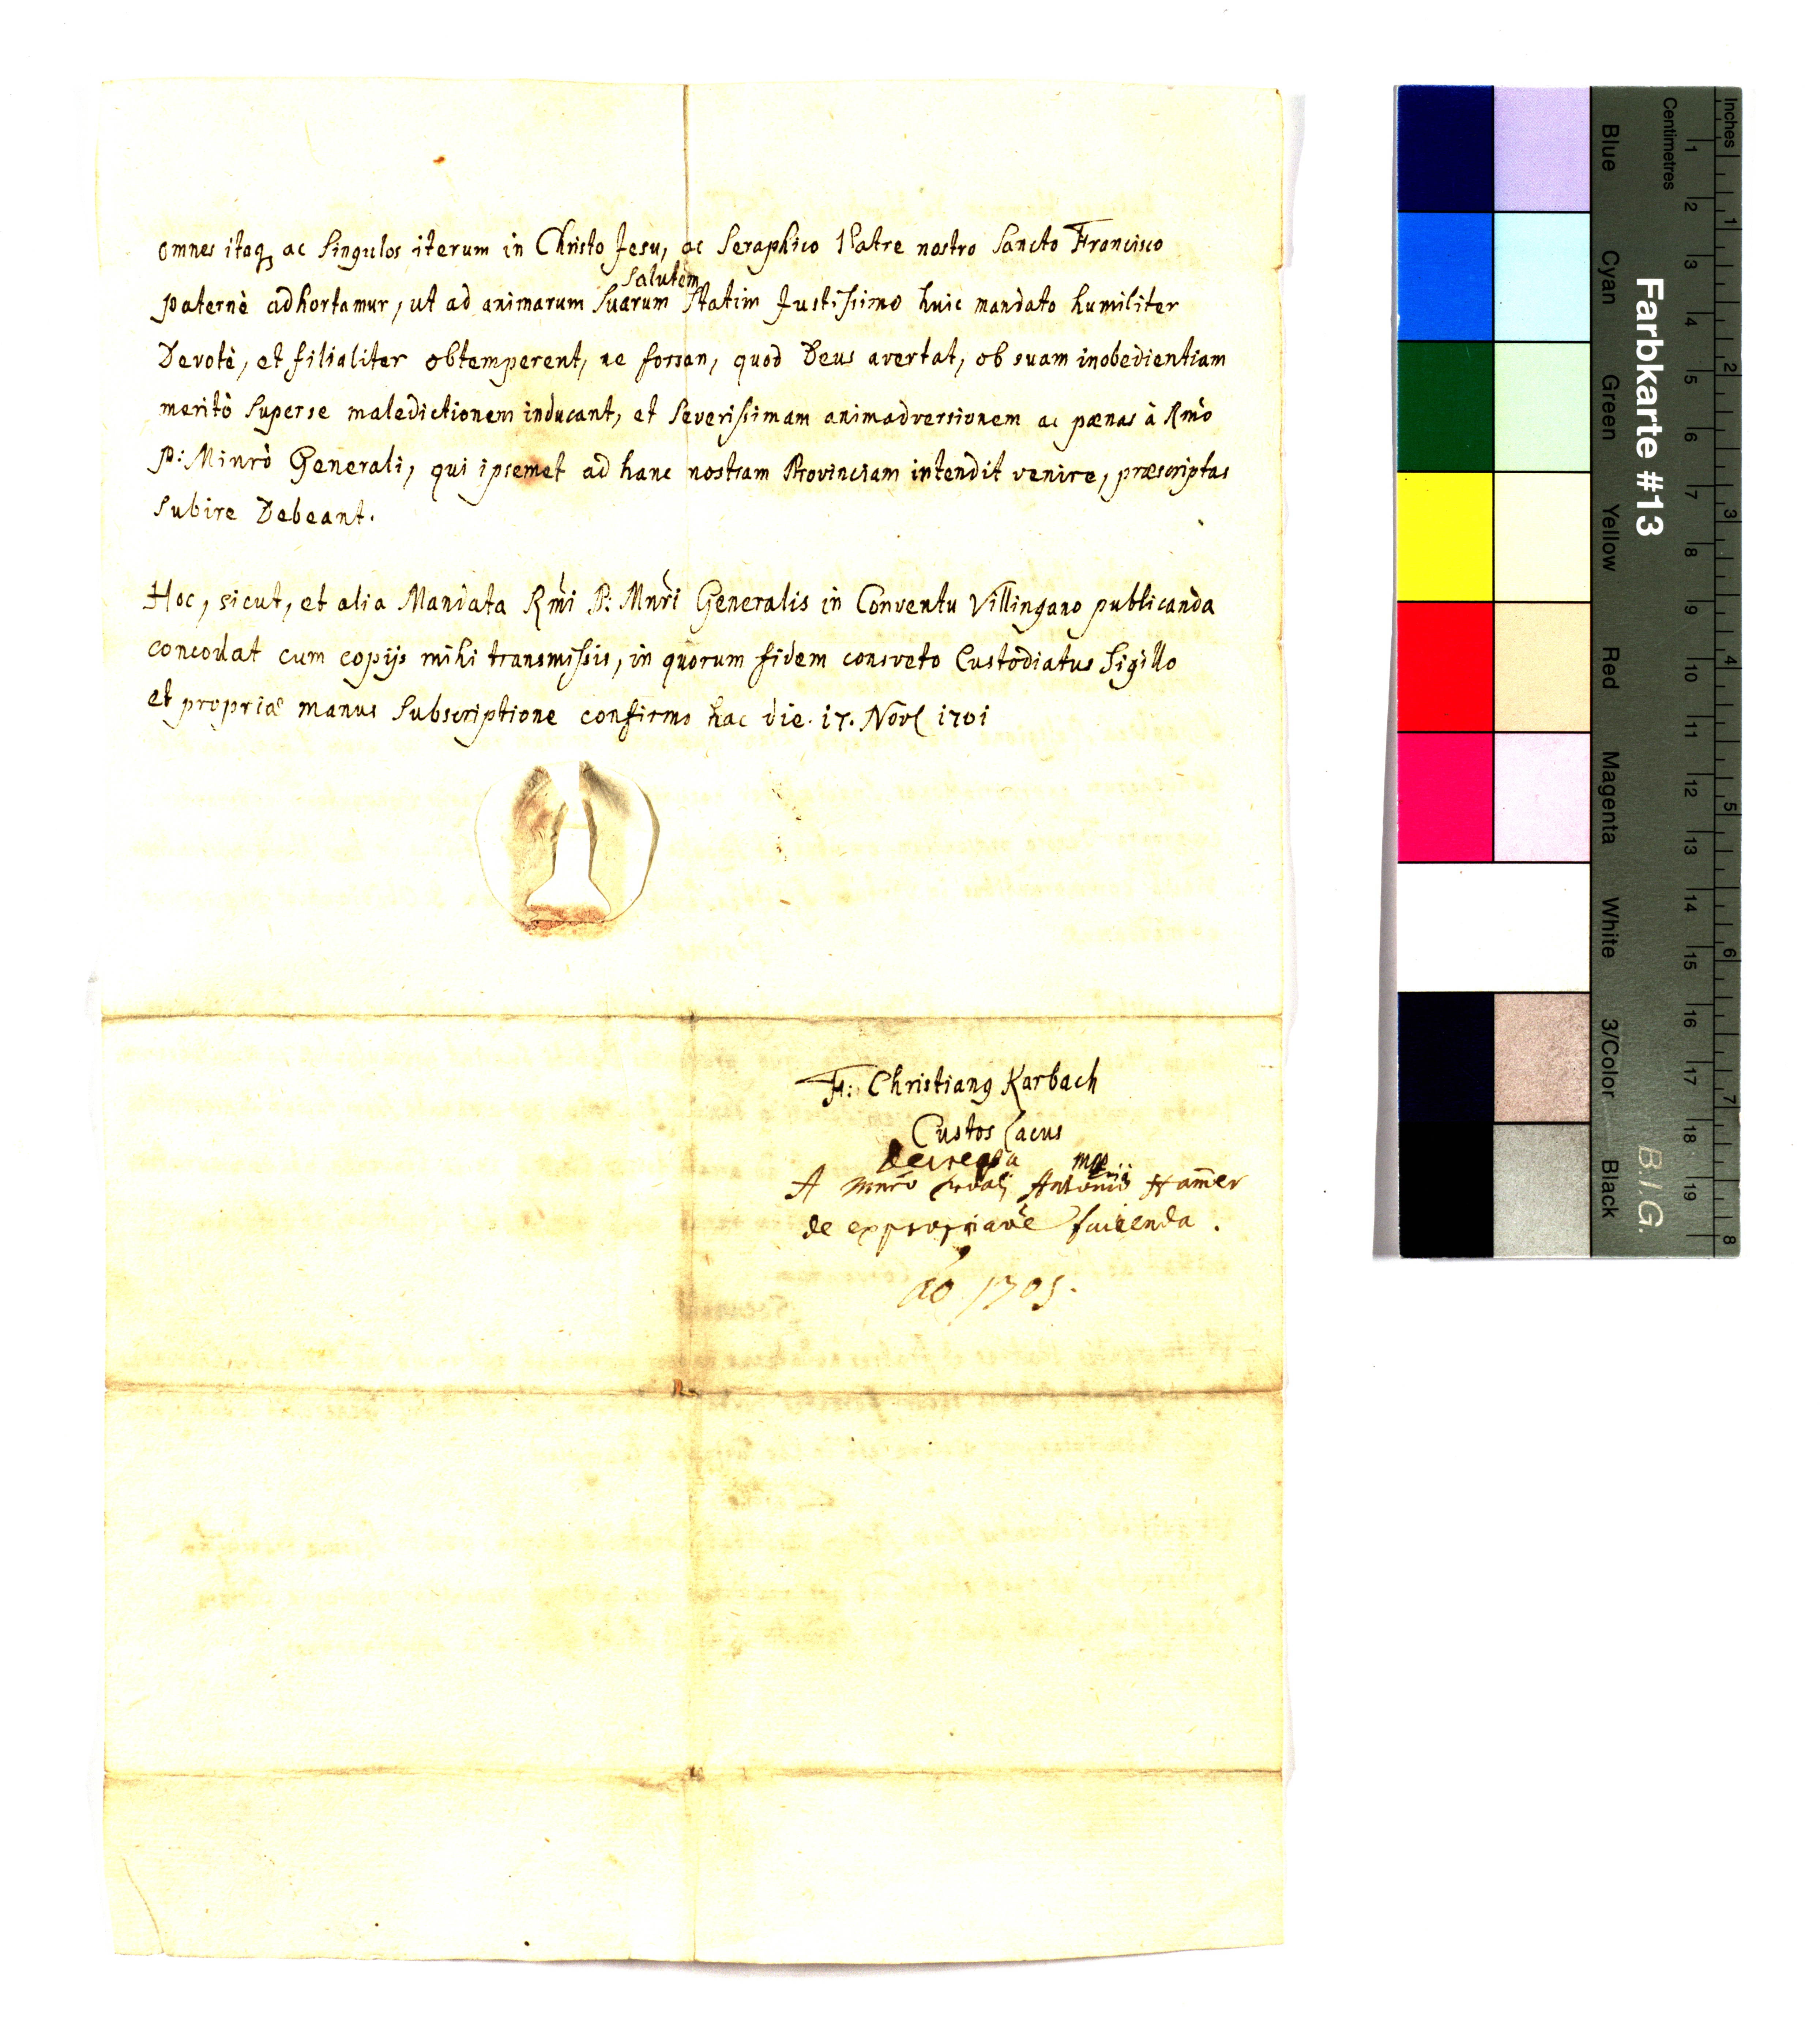 omnes itaq₃ ac singulos iterum in Christo Jesu, ac Seraphico Patre nostro Sancto Francisco
salutem
paternè adhortamur, ut ad animarum suarum statim Justissimo huic mandato humiliter
Devotè, et filialiter obtemperent, ne forsan, quod Deus avertat, ob suam inobedientiam
meritò superse maledictionem inducant, et severissimam animadversionem ac pænas à Rm̃o
P: Minrò Generali, qui ipsemet ad hanc nostram Provinciam intendit venire, præscriptas
subire Debeant.
Hoc, sicut, et alia Mandata Rm̃i P: Mnr̃i Generalis in Conventu Villingano publicanda
concordat cum copijs mihi transmissis, in quorum fidem consveto Custodiatus Sigillo
et propriæ manus subscriptione confirmo hac die. 17. Novꝭ 1701
F: Christianꝯ Karbach
Custos Lacus
mpp
A Mnrõ Antonio Ham̃er
de expropriaõe facienda.
aõ 1701.
Farbkarte #13
B.I.G.
Inches
Centimetres
1 2 3 4 5 6 7 8
1 2 3 4 5 6 7 8 9 10 11 12 13 14 15 16 17 18 19
Blue Cyan Green Yellow Red Magenta White 3/Color Black